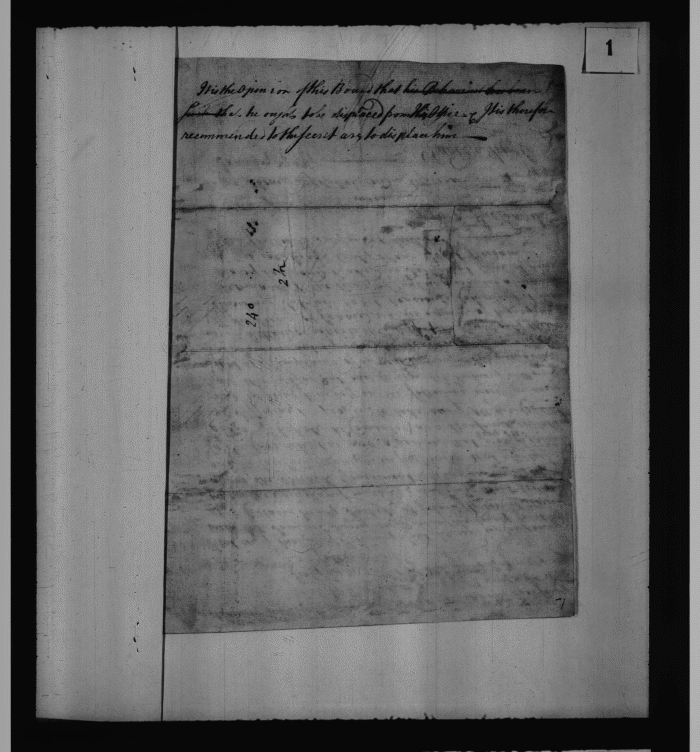 1
It is the Opinion of this Board that his Behaviour has been
such that he ought to be displaced from this Office & It is therefore
recommended to the Secretary to displace him
240
24
7